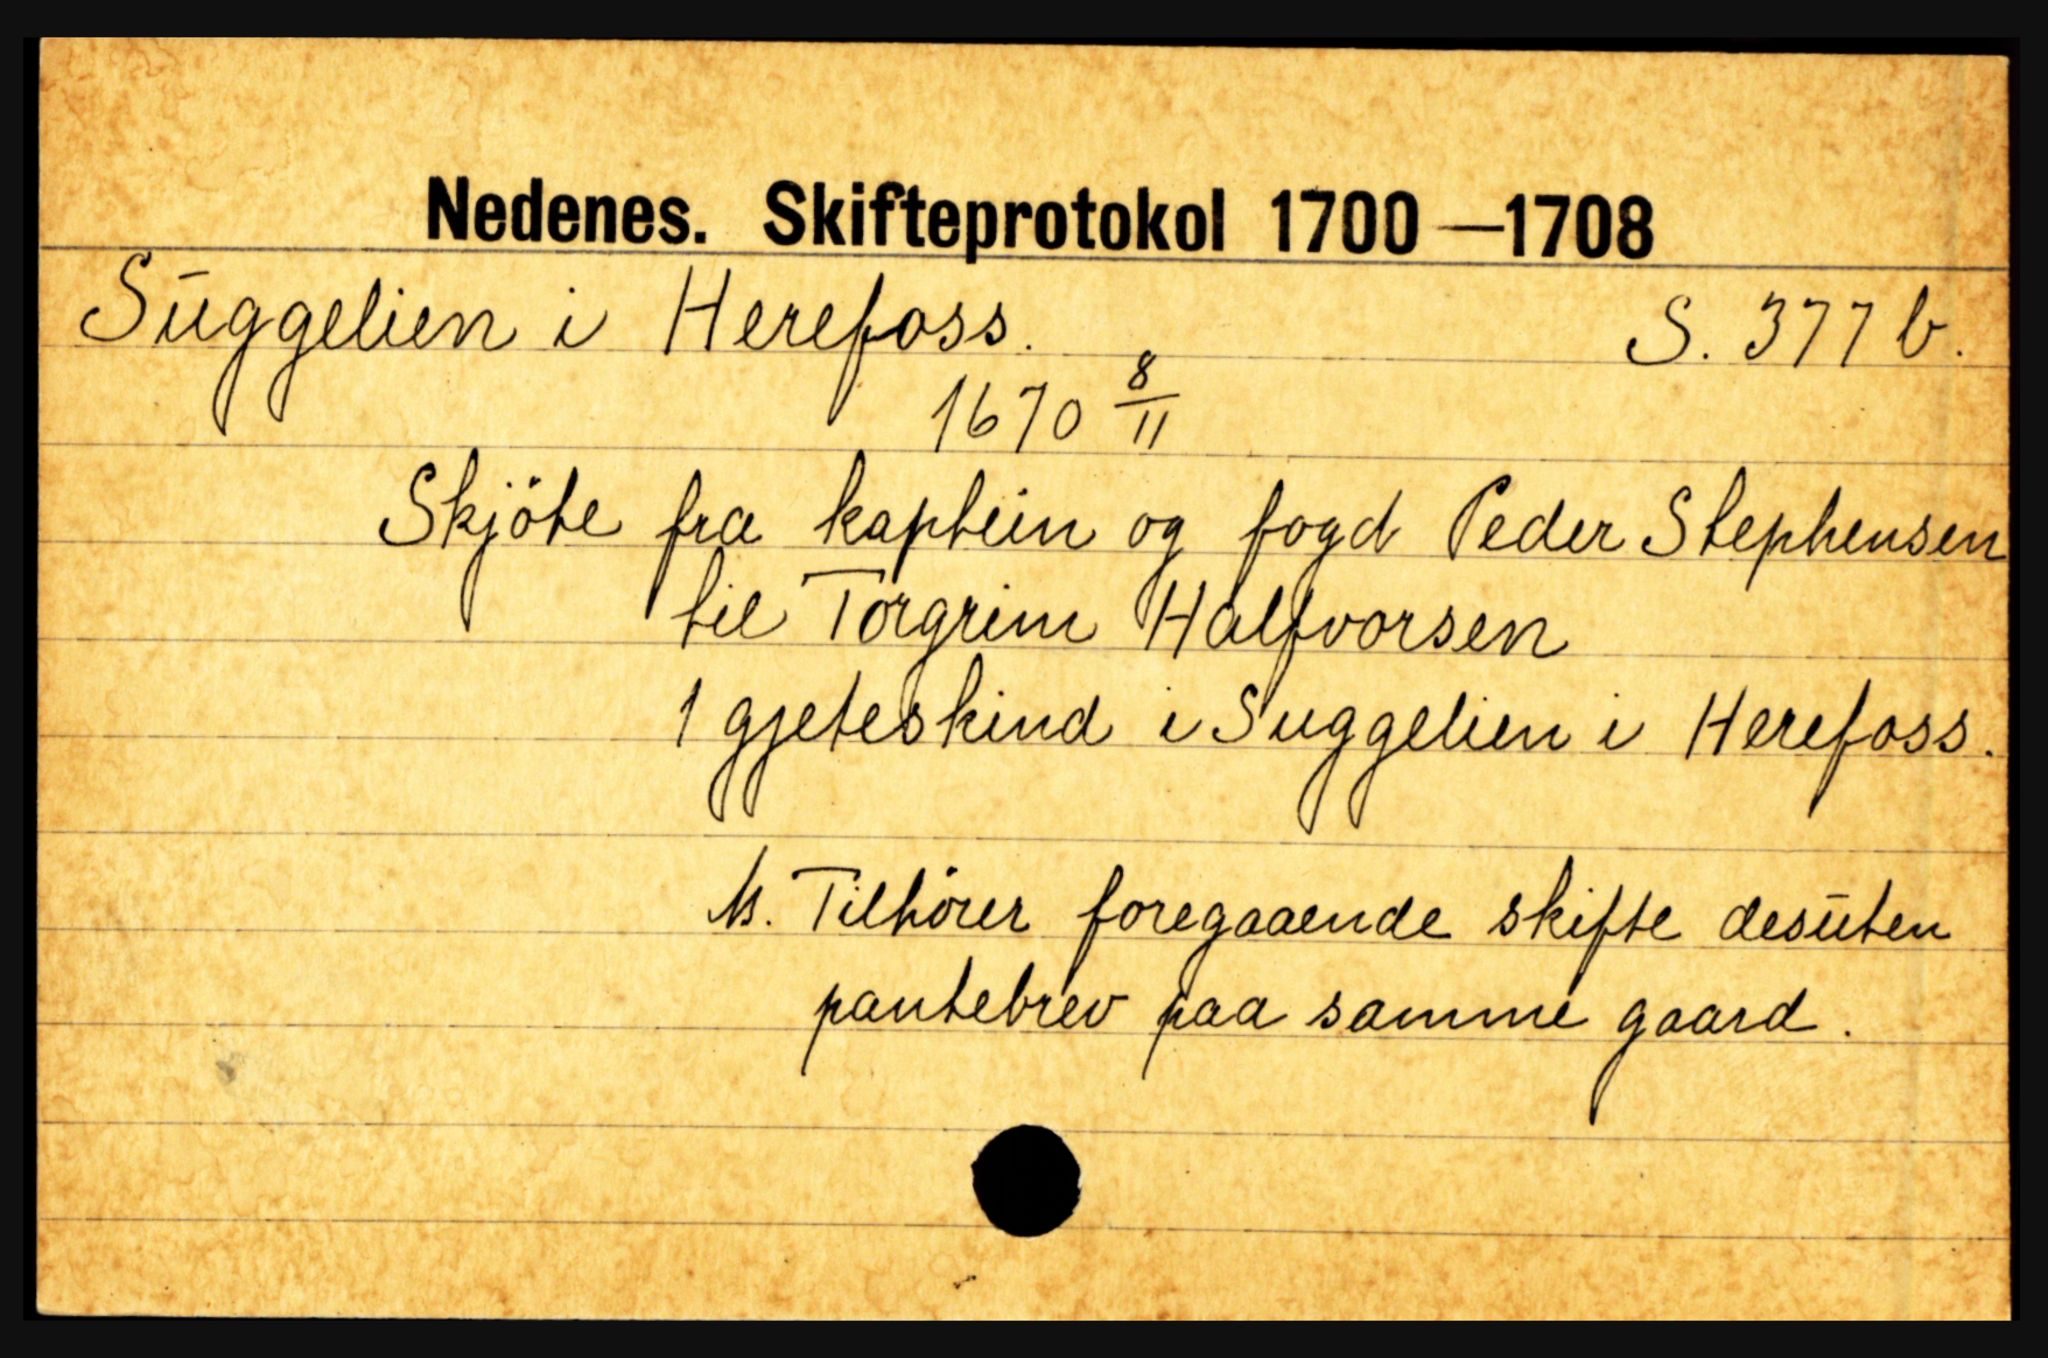 Nedenes. Skifteprotokol 1700—1708
Sūggelien i Herefoss. S. 377 b.
1670 8/11
Skjöte fra kaptein og fogd Peder Stephensen
til Torgrim Halfvorsen
1 gjeteskind i Suggelien i Herefoss.
Tilhörer foregaaende skifte desūten
pantebrev paa samme gaard.